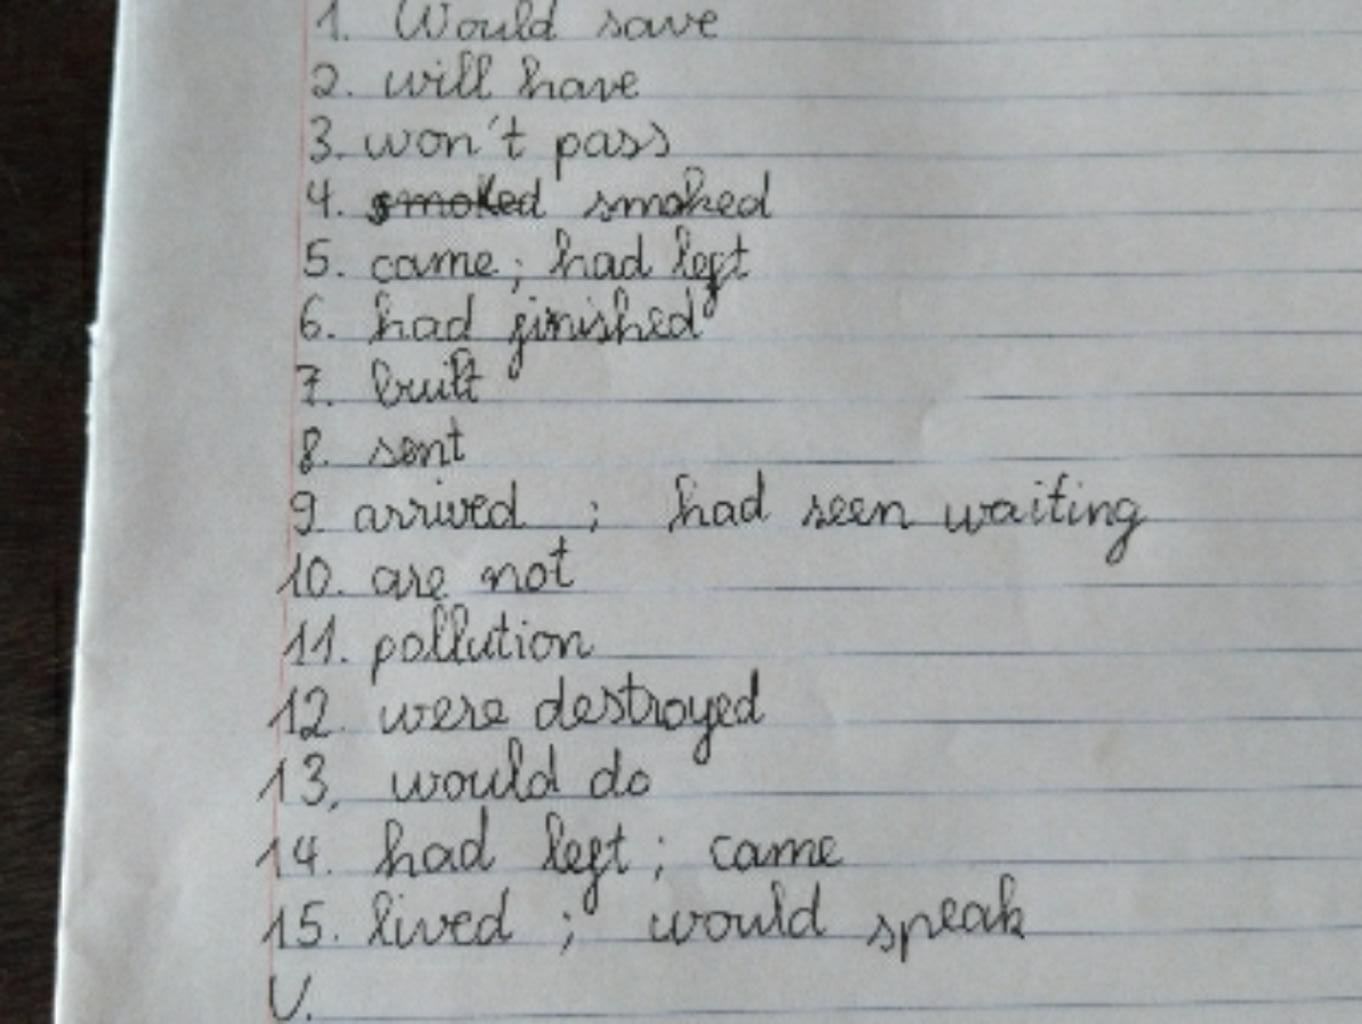 1. Would save
2. will have
3. won't pass
4. smoked smoked
5. came; had left
6. had finished
7. built
8. sent
9 arrived ; had seen waiting
10. are not
11. pollution
12. were destroyed
13, would do
14. had left ; came
15. lived ; would speak
V.